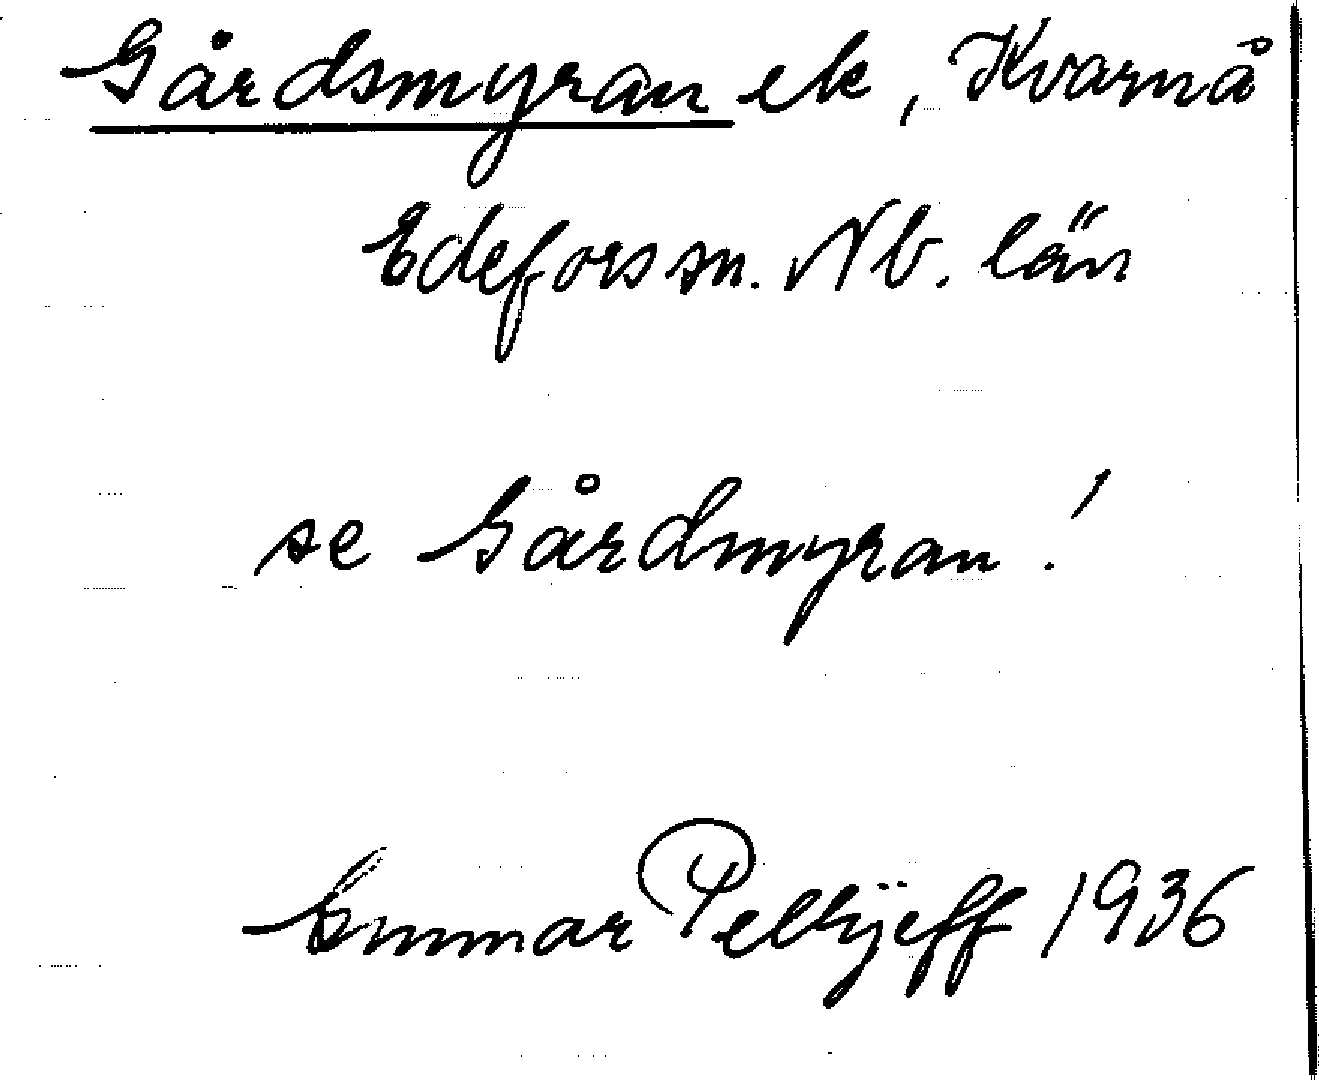 Gårdsmyran ek, Kvarnå
Edefors sn. Nb. län
se Gårdmyran!
Gunnar Pellijeff 1936